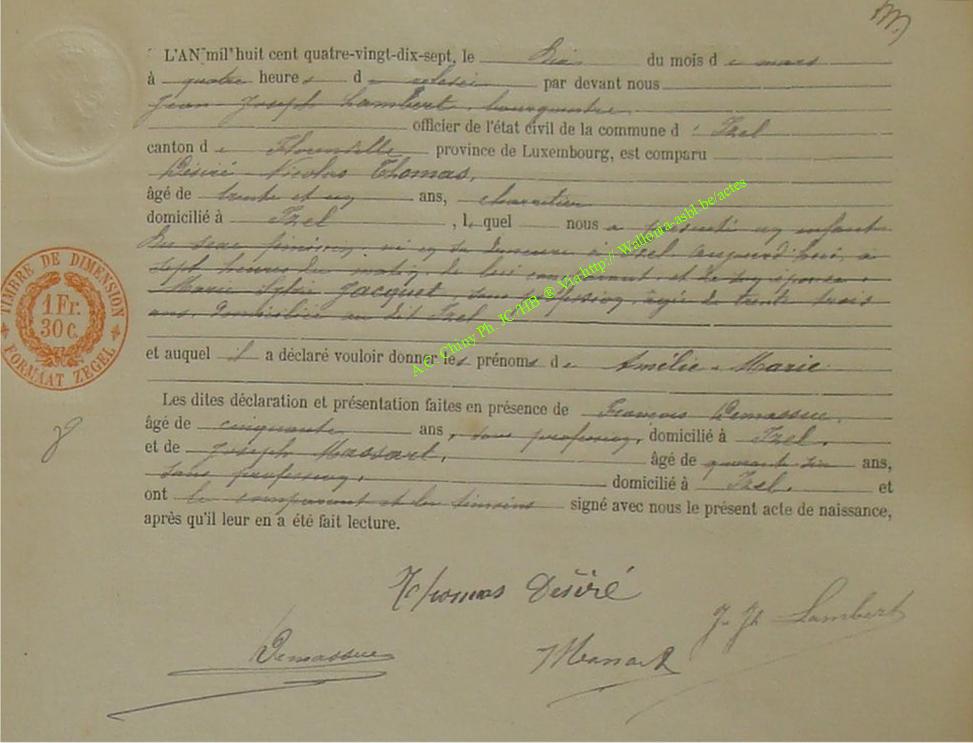 L'AN mil huit cent quatre-vingt-dix-sept, le dix du mois de mars
à quatre heures de relevée par devant nous
Jean Joseph Lambert, bourgmestre
officier de l'état civil de la commune d' Izel
canton de Florenville province de Luxembourg, est comparu
Désiré Nicolas Thomas,
âgé de trente et un ans, charretier
domicilié à Izel, lequel nous a présenté un enfant
du sexe féminin, né en sa demeure à Izel aujourd'hui, à
sept heures du matin, de lui comparant, et de son épouse
Marie Jacquet, sans profession, âgée de trente trois
ans, domiciliée au dit Izel
et auquel il a déclaré vouloir donner les prénoms de Amélie Marie
Les dites déclaration et présentation faites en présence de François Demassue,
âgé de cinquante ans, sans profession, domicilié à Izel,
et de Joseph Massart, âgé de quarante six ans,
sans profession, domicilié à Izel, et
ont le comparant et les témoins signé avec nous le présent acte de naissance,
après qu'il leur en a été fait lecture.
Thomas Désiré
J. Jh Lambert
Demassue
Massart
TIMBRE DE DIMENSION
1 Fr.
30 C.
FORMAAT ZEGEL
A.C. Chiny Ph. JC/HB @ Via http://Wallonia-asbl.be/actes